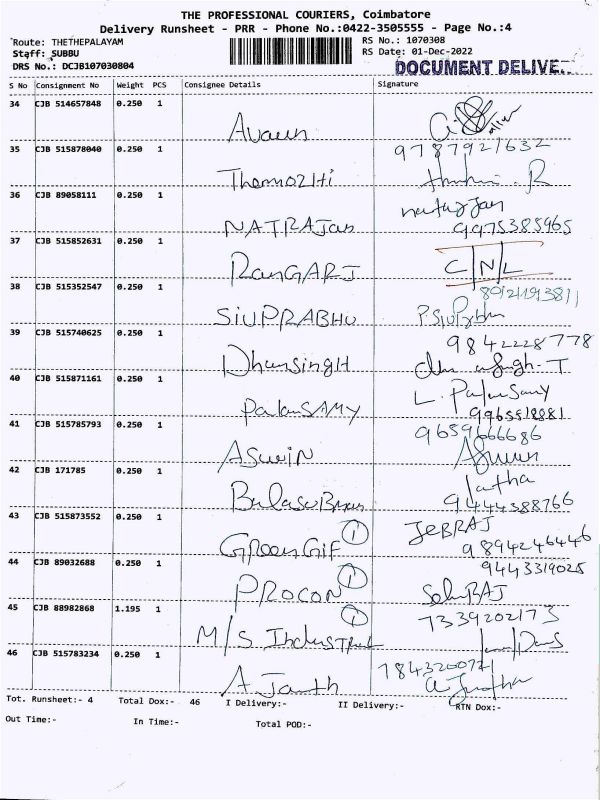 THE PROFESSIONAL COURIERS, Coimbatore
Delivery Runsheet - PRR - Phone No.:0422-3505555 - Page No.:4
Route: THETHEPALAYAM RS No.: 1070308
Staff: SUBBU RS Date: 01-Dec-2022
DRS No.: DCJB107030804 DOCUMENT DELIVE
S No Consignment No Weight PCS Consignee Details Signature
34 CJB 514657848 0.250 1
9787921632
35 CJB 515878040 0.250 1
Thermozhi
36 CJB 89058111 0.250 1
NATRAJan natarjan
9975385965
37 CJB 515852631 0.250 1
RanGARJ C/N/L
38 CJB 515352547 0.250 1
SIUPRABHU P.SiuPrabhu
39 CJB 515740625 0.250 1 9842228778
DhansingH
40 CJB 515871161 0.250 1
PalanSAMY L. PalanSamy
41 CJB 515785793 0.250 1 9659666686
ASwiN
42 CJB 171785 0.250 1 latha
9444388766
43 CJB 515873552 0.250 1 JEBRAJ
GreenGif 1 9894246446
44 CJB 89032688 0.250 1 9443319025
PROCON 1
45 CJB 88982868 1.195 1 7339202173
M/S 1
46 CJB 515783234 0.250 1
Tot. Runsheet:- 4 Total Dox:- 46 I Delivery:- II Delivery:- RTN Dox:-
Out Time:- In Time:- Total POD:-